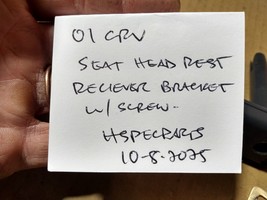 01 CRV
SEAT HEAD REST
RECIEVER BRACKET
W/ SCREW.
HSPECPARTS
10-8-2025